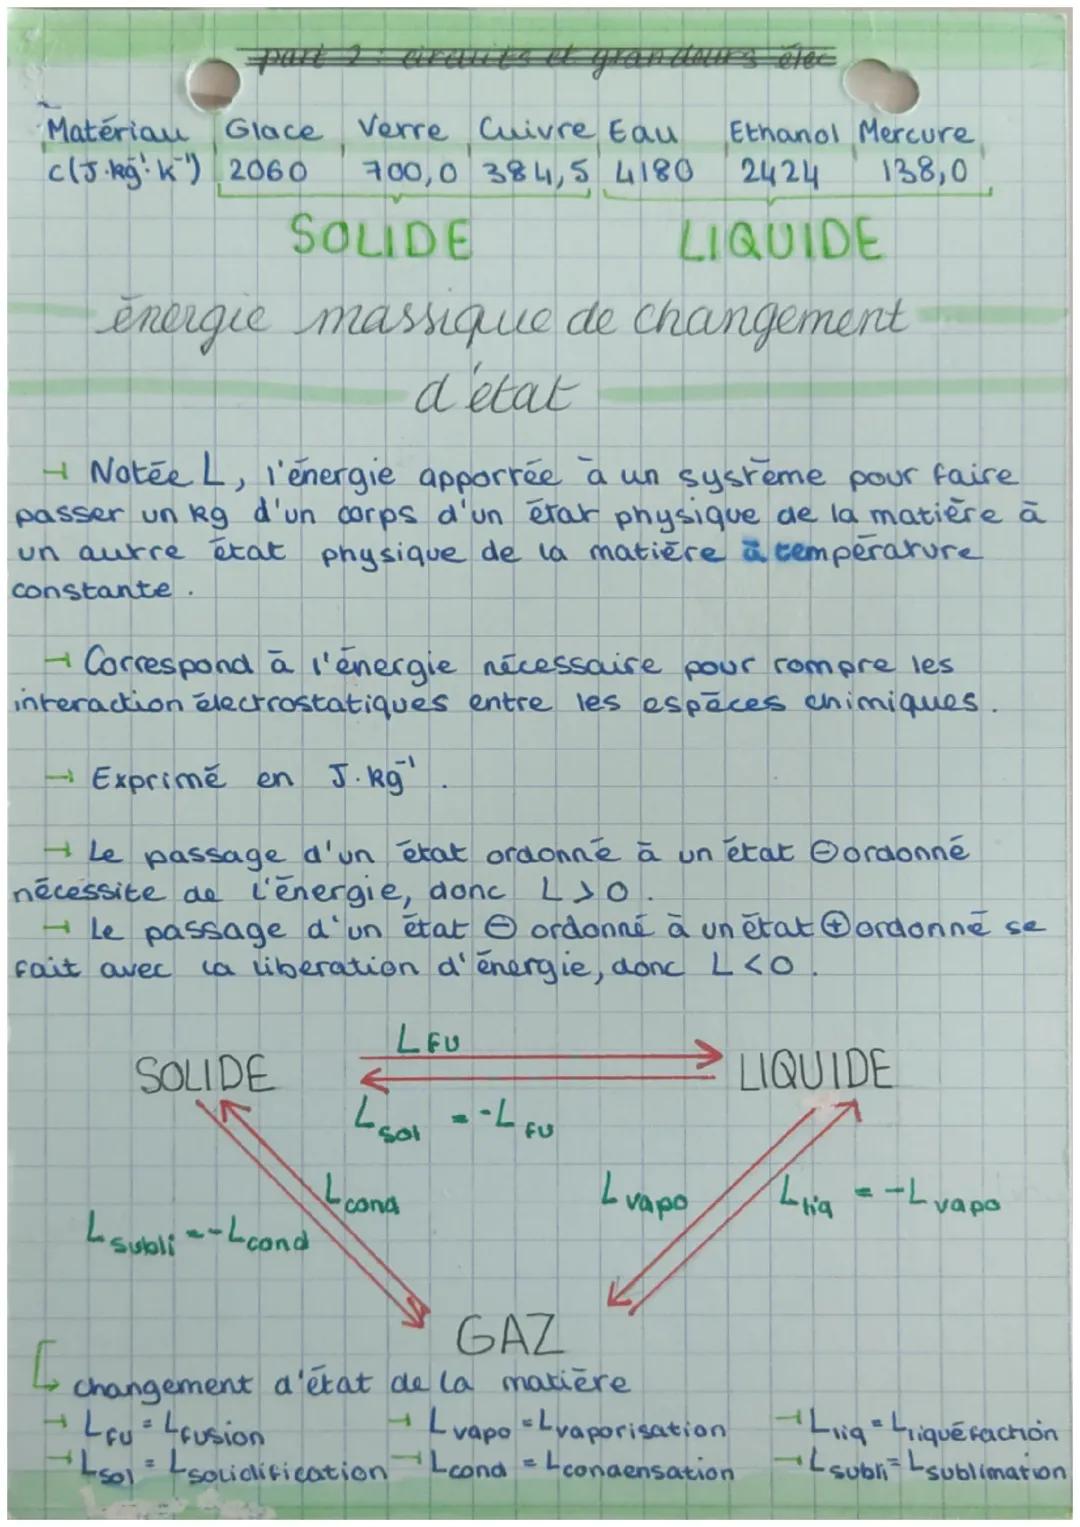 part 2 : circuits et grandeurs élec
Matériau Glace Verre Cuivre Eau Ethanol Mercure
c(J.kg⁻¹.K⁻¹) 2060 700,0 384,5 4180 2424 138,0
SOLIDE LIQUIDE
énergie massique de changement
d'état
→ Notée L, l'énergie apportée à un système pour faire
passer un kg d'un corps d'un état physique de la matière à
un autre état physique de la matière à température
constante.
→ Correspond à l'énergie nécessaire pour rompre les
interaction électrostatiques entre les espèces chimiques.
→ Exprimé en J.kg⁻¹.
→ Le passage d'un état ordonné à un état ⊖ ordonné
nécessite de l'énergie, donc L>0.
→ Le passage d'un état ⊖ ordonné à un état ⊕ ordonné se
fait avec la liberation d'énergie, donc L<0.
L fu
SOLIDE LIQUIDE
L sol = -L fu
L cond L vapo L liq = -L vapo
L subli = -L cond
GAZ
changement d'état de la matière
→ L fu = L fusion → L vapo = L vaporisation → L liq = L liquéfaction
→ L sol = L solidification → L cond = L condensation → L subli = L sublimation